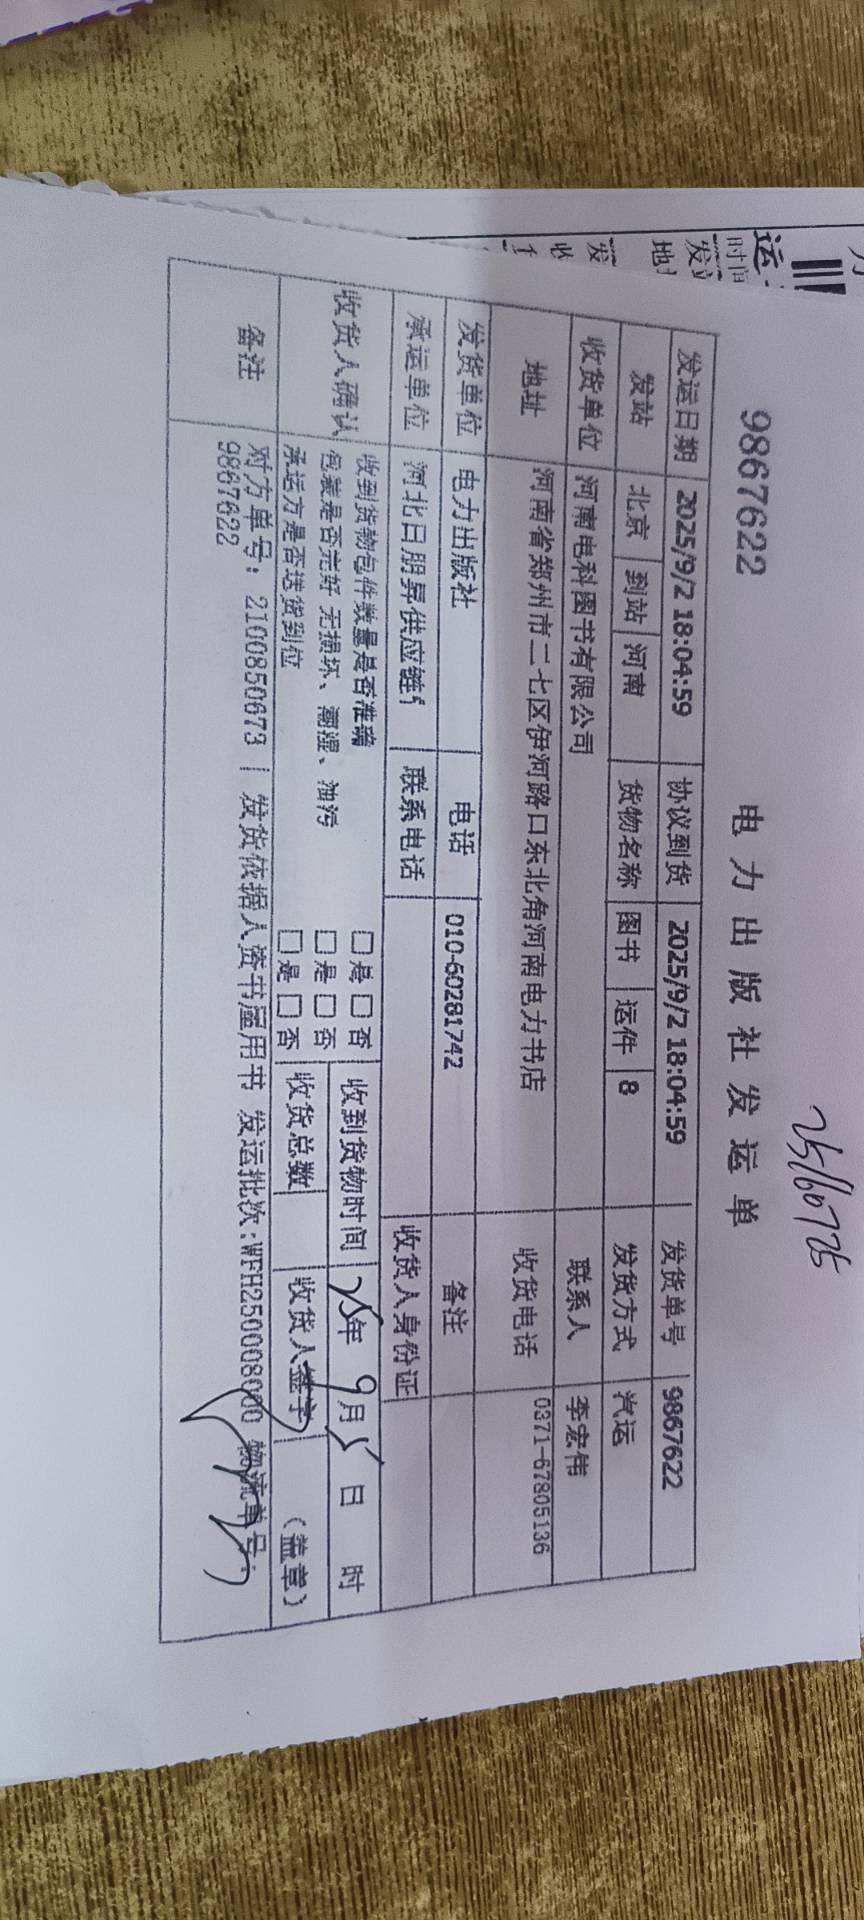 25160725
9867622
电力出版社发运单
发运日期 2025/9/2 18:04:59 协议到货 2025/9/2 18:04:59 发货单号 9867622
发站 北京 到站 河南 货物名称 图书 运件 8 发货方式 汽运
收货单位 河南电科图书有限公司 联系人 李宏伟
地址 河南省郑州市二七区伊河路口东北角河南电力书店 收货电话 0371-67805136
发货单位 电力出版社 电话 010-60281742 备注
承运单位 河北日朋昇供应链 联系电话 收货人身份证
收货人确认 收到货物包件数量是否准确 □是□否 收到货物时间 25年 9月5日 时
包装是否完好 无损坏、潮湿、油污 □是□否
承运方是否送货到位 □是□否 收货总数 收货人签字 (盖章)
备注 对方单号: 2100850673 | 发货依据人资书屋用书 发运批次:WFH250008000 物流单号:
9867622
运
时间
发
地
发
收